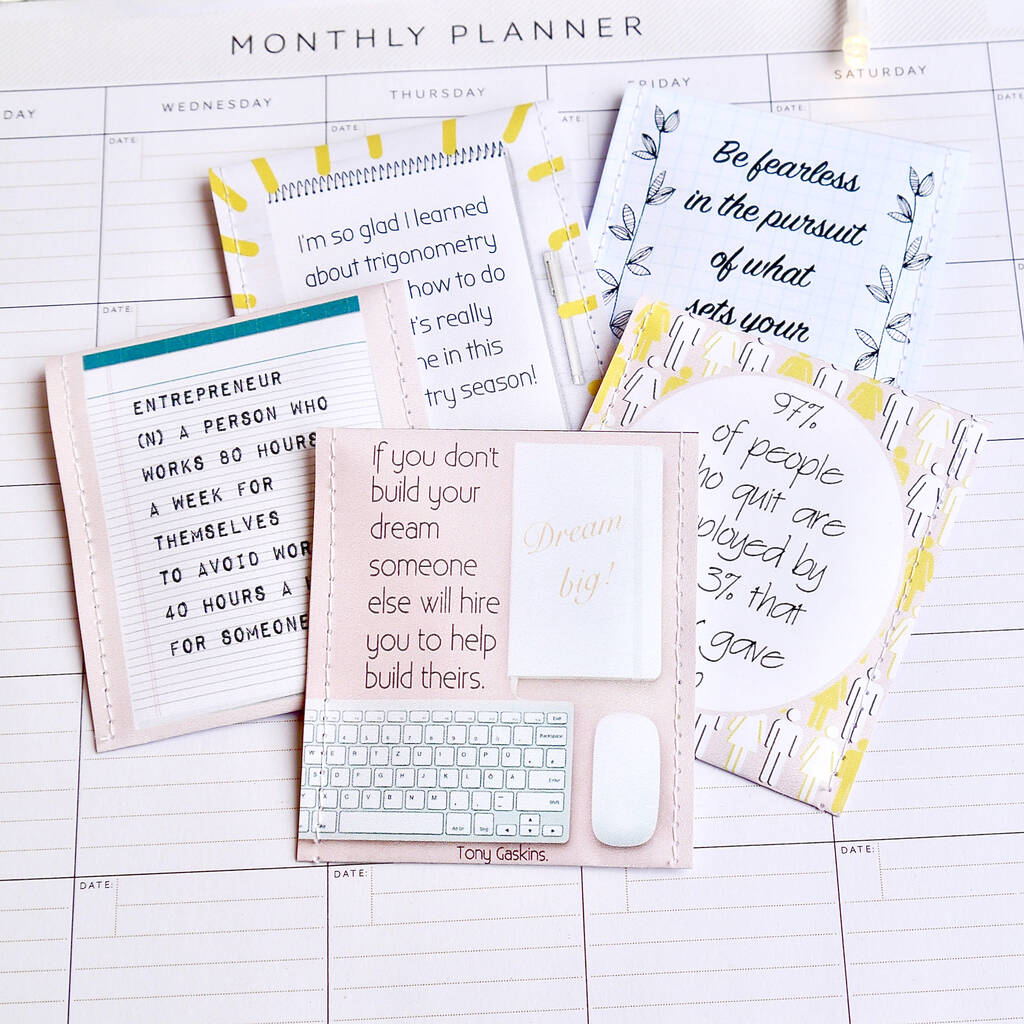 MONTHLY PLANNER
DAY
WEDNESDAY
THURSDAY
FRIDAY
SATURDAY
DATE:
DATE:
ATE:
DATE:
DATE:
I'm so glad I learned
about trigonometry
how to do
t's really
me in this
try season!
Be fearless
in the pursuit
of what
sets your
ENTREPRENEUR
(N) A PERSON WHO
WORKS 80 HOURS
A WEEK FOR
THEMSELVES
TO AVOID WOR
40 HOURS A
FOR SOMEONE
97%
of people
who quit are
ployed by
3% that
gave
If you don't
build your
dream
someone
else will hire
you to help
build theirs.
Dream
big!
Tony Gaskins.
DATE:
DATE:
DATE: